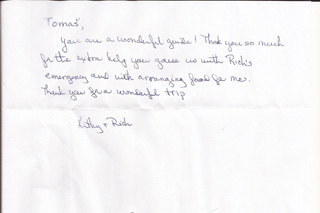 Tomaš,
You are a wonderful guide! Thank you so much
for the extra help you gave us with Rich's
emergency and with arranging food for me.
Thank you for a wonderful trip
Kathy + Rich